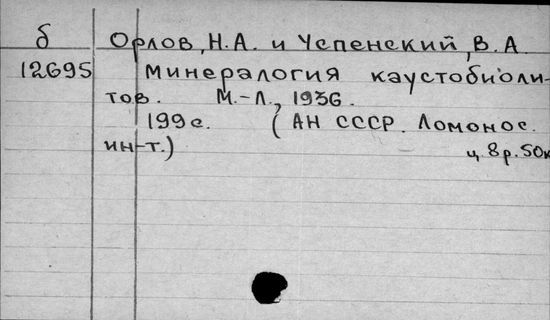 б Орлов, Н.А. и Успенский, В.А.
12695 Минералогия каустобиоли-
тов. М.-Л., 1936.
199с. (АН СССР. Ломонос.
ин-т.)
ц. 8р.50к